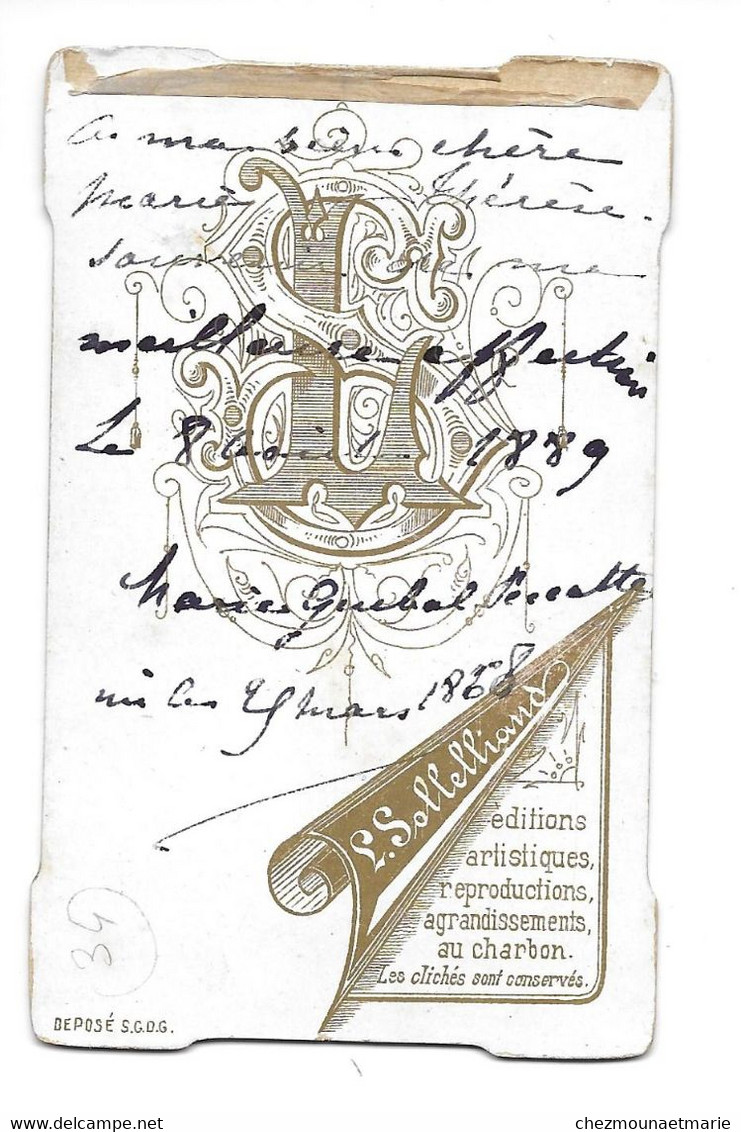 A ma bien chère
Marie Thérèse.
Souvenir
meilleure affection
Le 8 Août 1889
Marie
mars 1868
L. Sollelliand
éditions
artistiques,
reproductions,
agrandissements,
au charbon.
Les clichés sont conservés.
34
DEPOSÉ S.G.D.G.
chezmounaetmarie